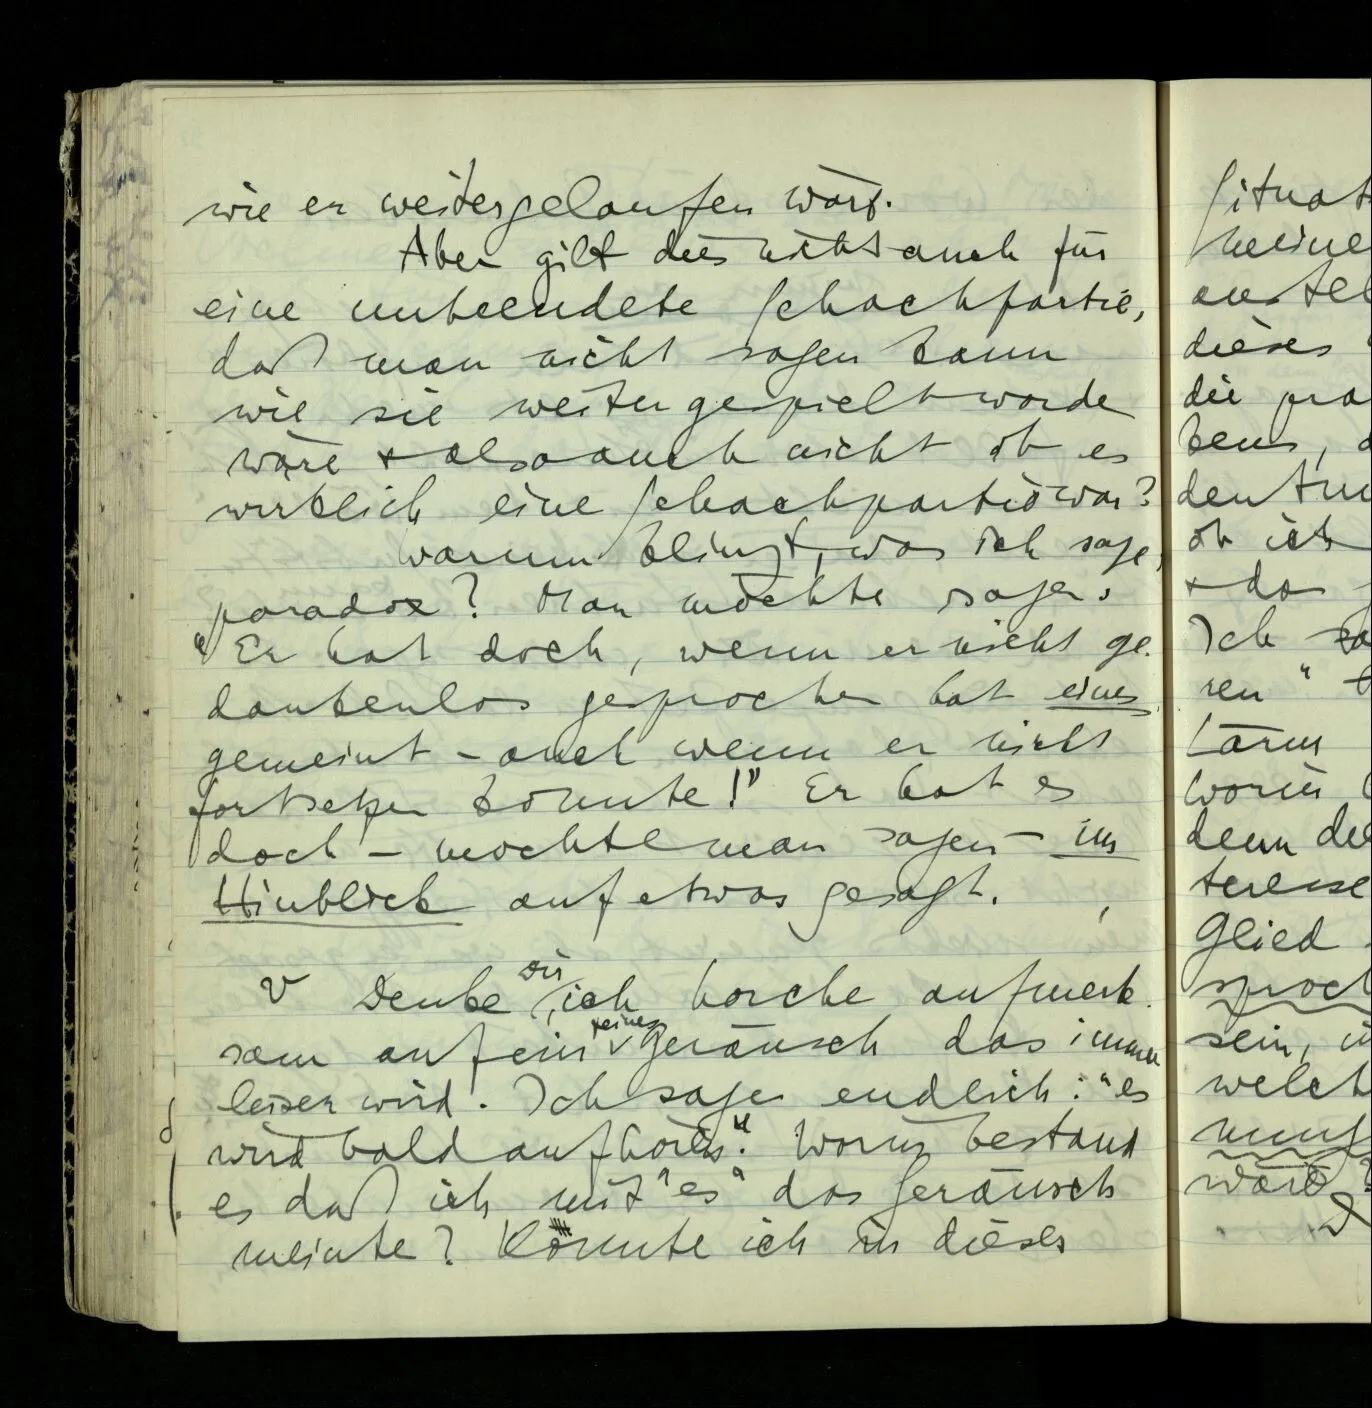 wie er weitergelaufen wäre.
Aber gilt dies nicht auch für
eine unbeendete Schachpartie,
daß man nicht sagen kann
wie sie weitergespielt worde
wäre + also auch nicht ob es
wirklich eine Schachpartie war?
Warum klingt, was ich sage,
paradox? Man möchte sagen:
“Er hat doch, wenn er nicht ge-
dankenlos gesprochen hat eines
gemeint – auch wenn er nicht
fortsetzen konnte!” Er hat es
doch – möchte man sagen – im
Hinblick auf etwas gesagt.
v Denke Dir, ich horche aufmerk-
sam auf ein feines Geräusch das immer
leiser wird. Ich sage endlich: “es
wird bald aufhören”. Worin bestand
es daß ich mit “es” das Geräusch
meinte? Konnte ich in dieses
Situat
meine
dieses
die pra
kens,
den
ob ich
+ da
Ich
ren”
Lärm
worin
denn die
teresse
Glied
sproch
sein,
welch